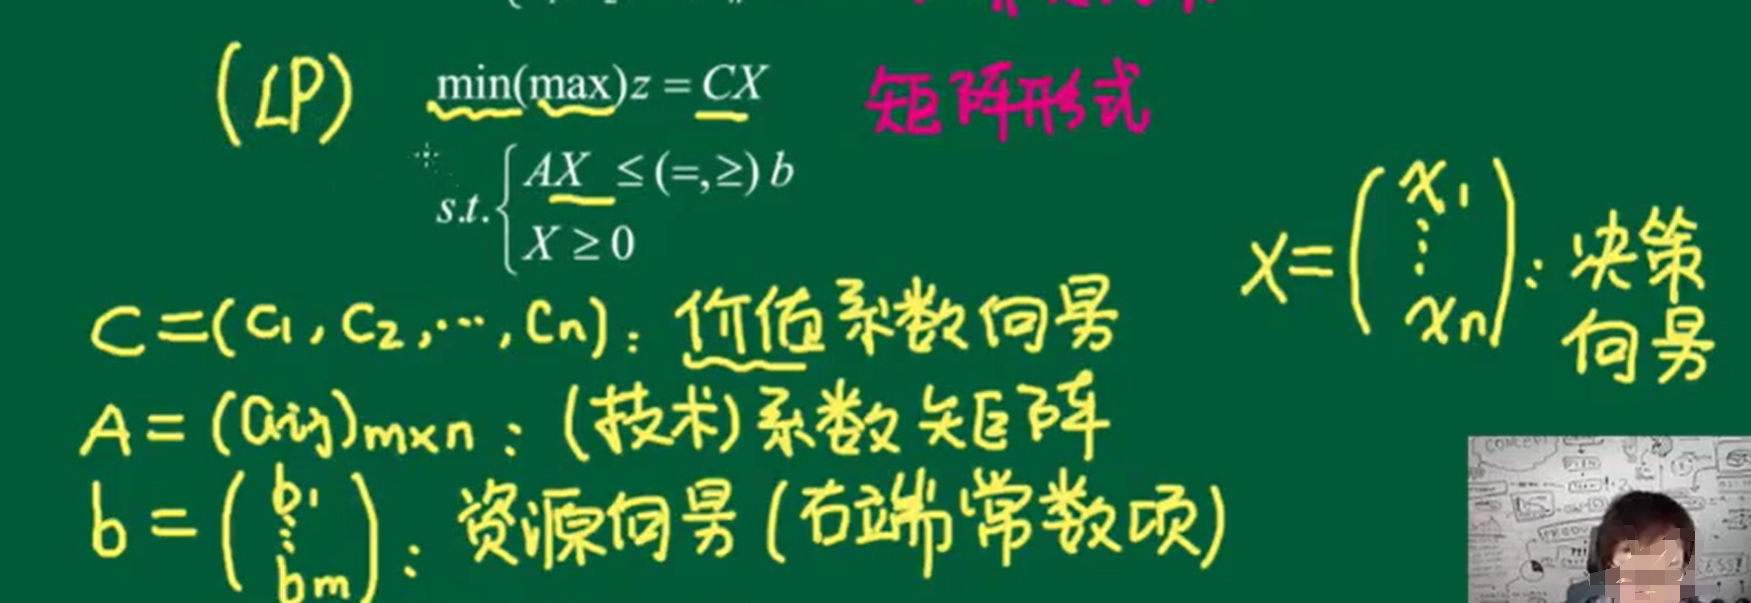 (LP) min(max)z = CX 矩阵形式
s.t. { AX ≤(=,≥) b
X ≥ 0
X=(x1 ⋮ xn): 决策向量
C=(c1, c2, ⋯, cn): 价值系数向量
A=(aij)m×n: (技术)系数矩阵
b=(b1 ⋮ bm): 资源向量(右端常数项)
CONCEPT